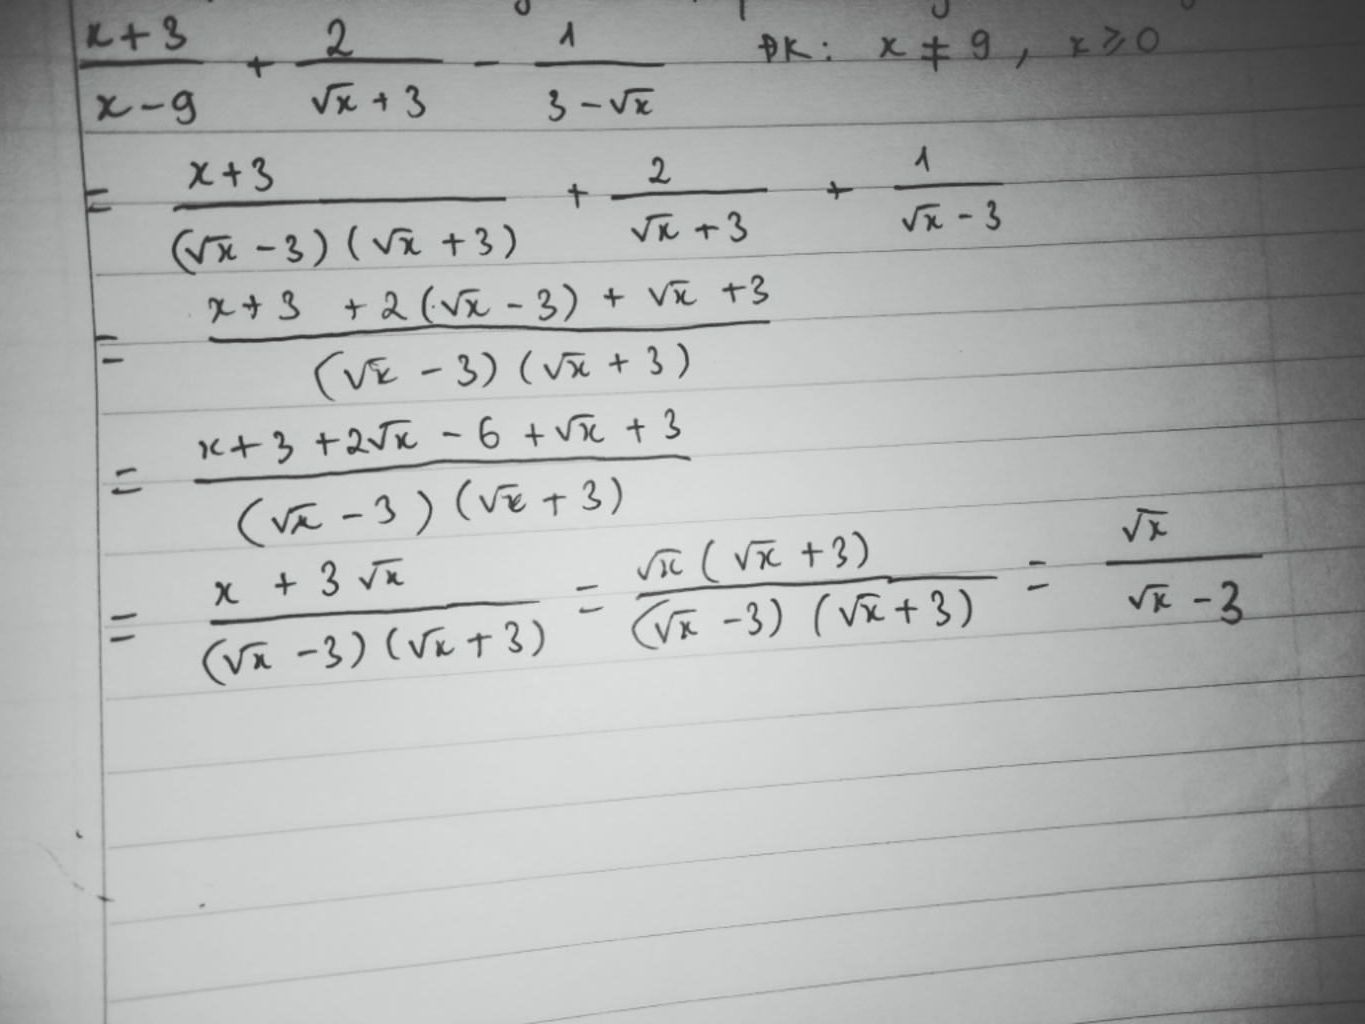 (x+3)/(x-9) + 2/(√x + 3) - 1/(3 - √x) ĐK: x ≠ 9, x ⩾ 0
= (x+3)/((√x - 3)(√x + 3)) + 2/(√x + 3) + 1/(√x - 3)
= (x+3 + 2(√x - 3) + √x + 3)/((√x - 3)(√x + 3))
= (x+3 + 2√x - 6 + √x + 3)/((√x - 3)(√x + 3))
= (x + 3√x)/((√x - 3)(√x + 3)) = (√x(√x + 3))/((√x - 3)(√x + 3)) = √x/(√x - 3)